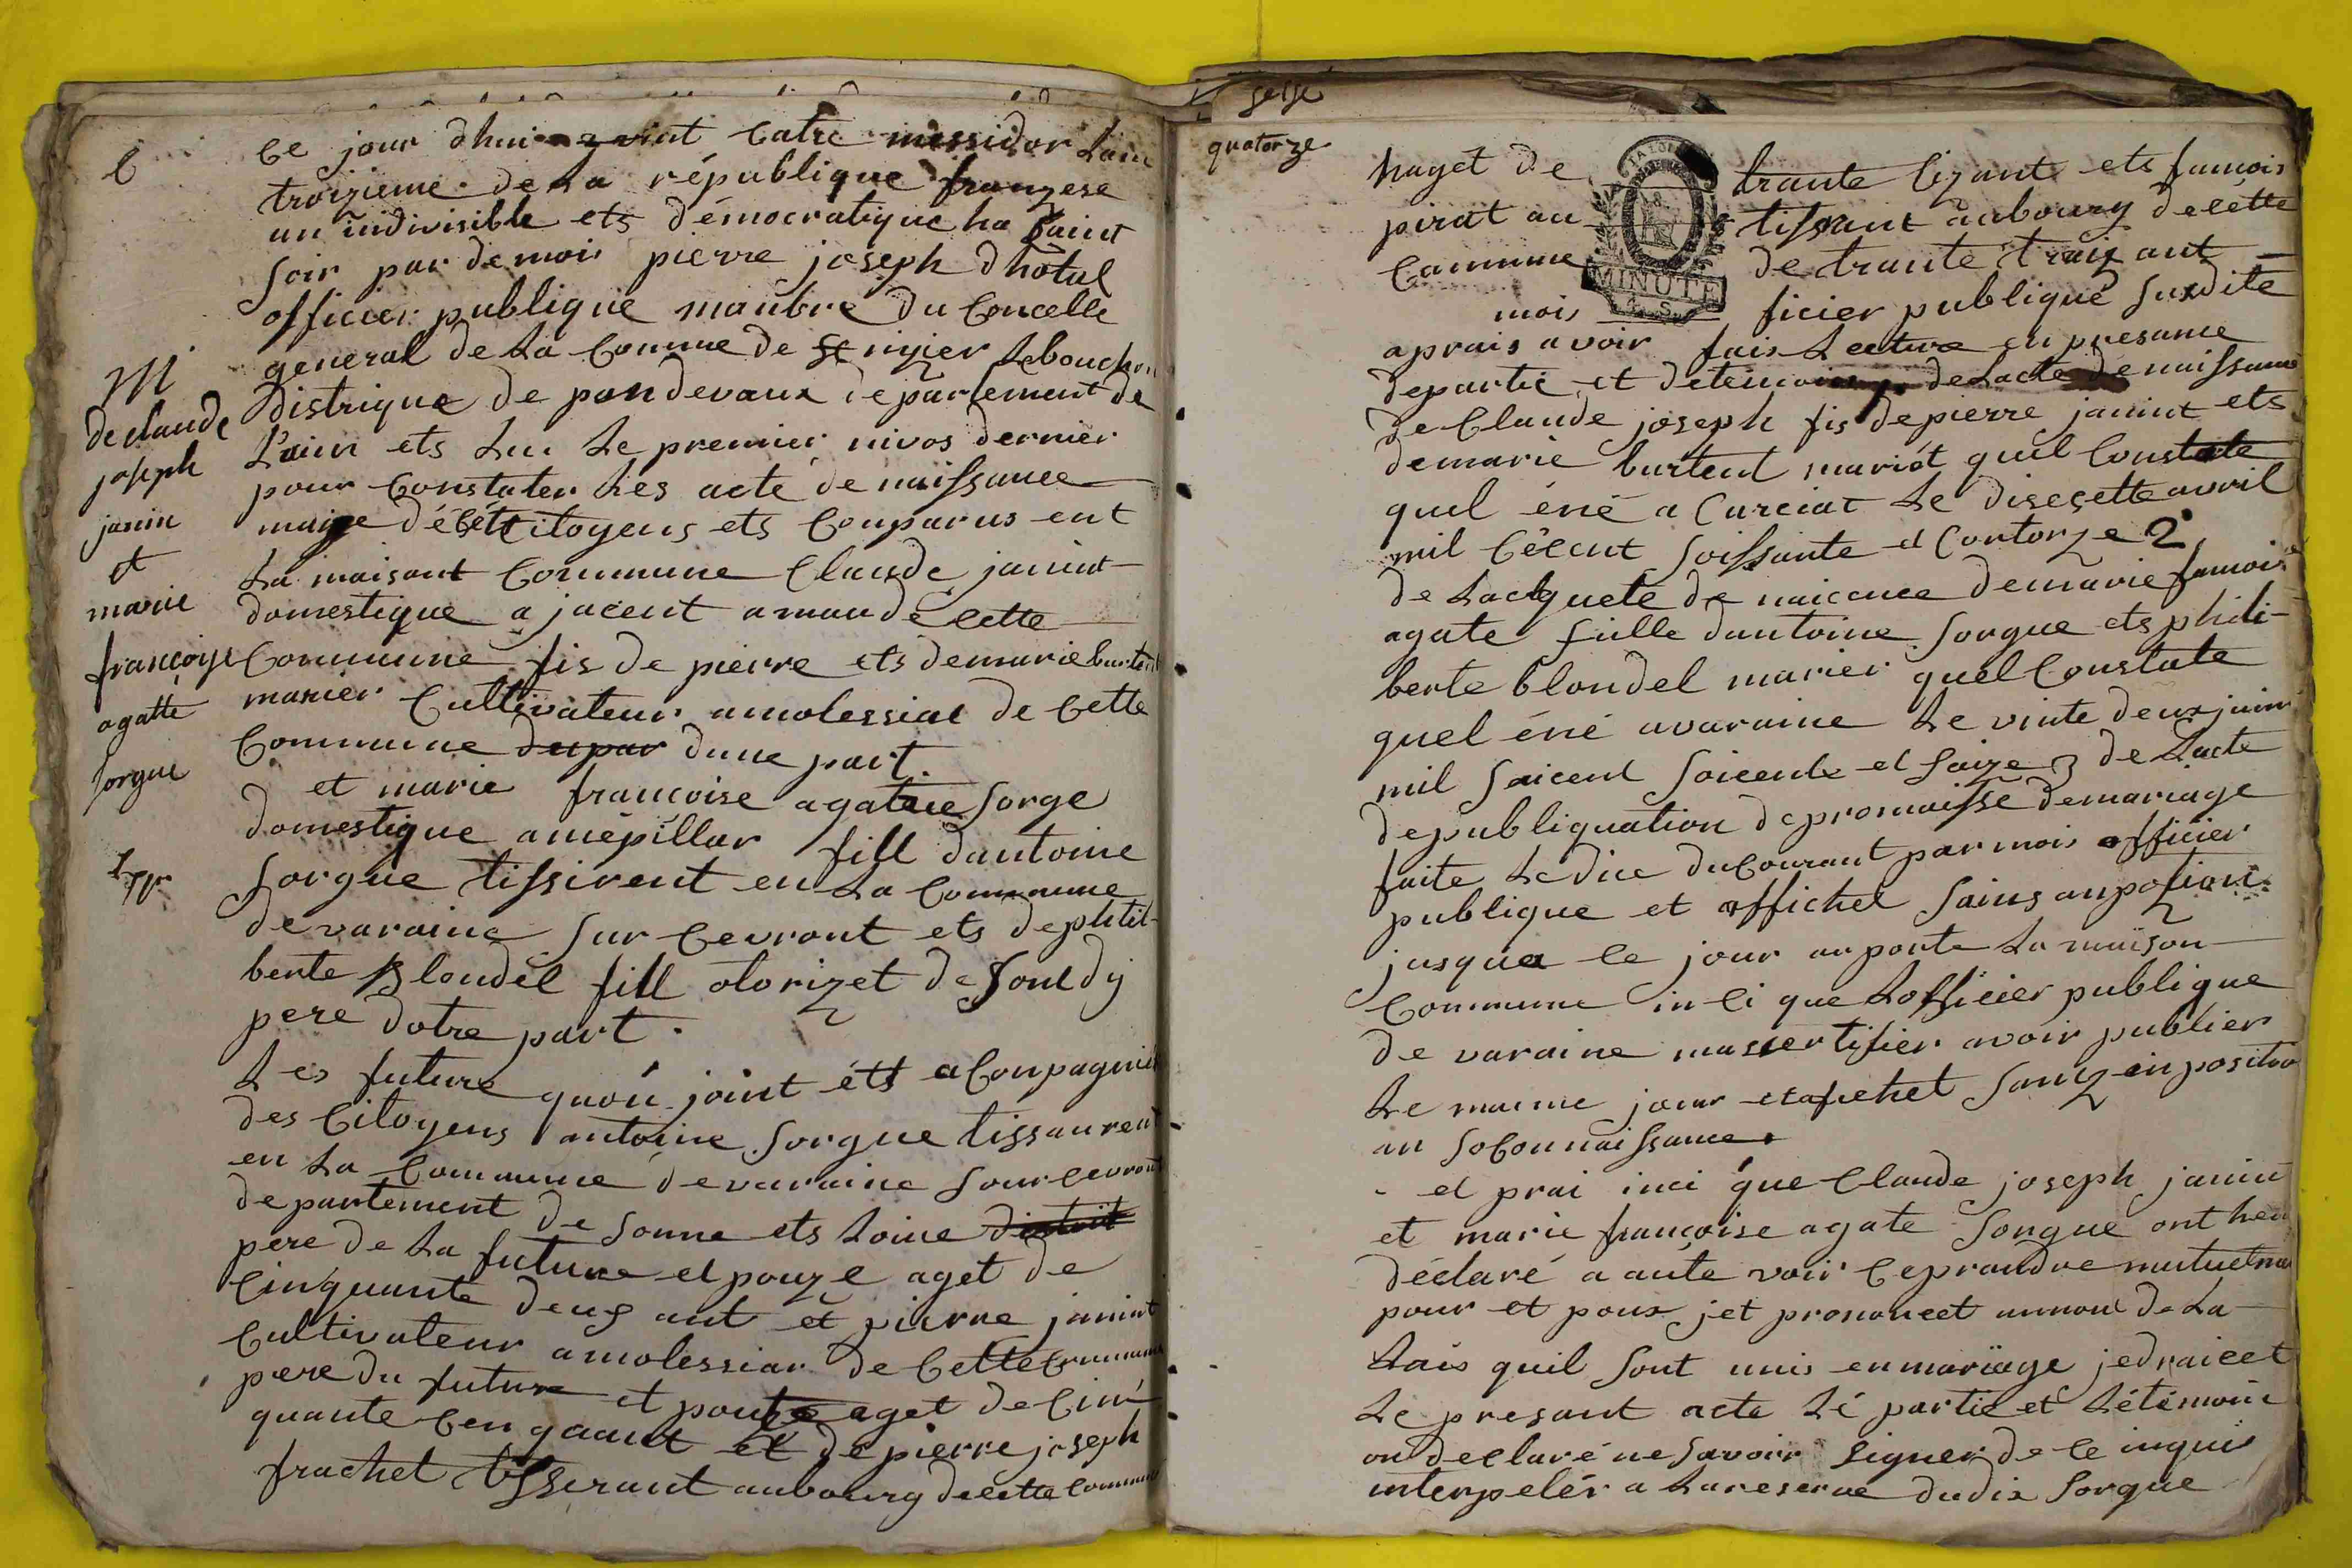 6
ce jour dhui vint catre messidor Lain
troizieme de La république franzese
un indivisible ets démocratique ha saint
soir par de moi pierre joseph dhotal
officier publique manbre du Concelle
general de La Commue de st nizier Lebouchou
Distrique de pondevaux departement de
L'ain ets Lu Le premier nivos dernier
pour Constater Les acte de naissance
maige décét Citoyens ets Conparus ent
La maisont Commune Claude janint
domestique a jacent amande cette
Commune fis de pierre ets de marie burtent
marier Cultivateur amolessiat de Cette
Commune dupar dune part.
et marie francoise agathe Sorge
domestique amépillar fill dantoine
Sorgue tissirent en La Commune
de varaine sur Cevront ets de phtil-
berte Blondel fill otorizet de sondy
pere dotre part.
Les future quon joint ets a Conpagniet
des Citoyens antoine Sorgue tissaurent
en La Commune de varaine sour cevront
departement de sonne ets Loire distrit
pere de La future et pouze aget de
Cinquante deus ant et pierre janint
Cultivateur amolessiar de Cette Commune
pere du future et pouze aget de Cin
quante Cen gaant et de pierre joseph
frachet tisserant aubourg de cette Commune
M
de claude
joseph
janin
et
marie
françoise
agatte
Sorgue
seize
quatorze
haget de trante Cizant ets francois
pirat au tissant aubourg de cette
Commune de trante traiz ant
mois ficier publique susdite
MINUTE
4. S.
aprais avoir fais Lecture en presance
departie et detemoins de Lacte de naissance
de Claude joseph fis de pierre janint ets
de marie burtent mariét quil Constate
quel éné a Curciat Le disesette avril
mil Cécent soissante et Contorze 2
de Lacquete de naicence de marie francoise
agate fille dantoine Sorgue ets phili-
berte blondel marier quel Constate
quel éné avaraine Le vinte deux juin
mil saicent soicente et saize 3 de Lacte
de publiquation de promaisse de mariage
faite Ledice du Courant par mois officier
publique et affichel sains anposition
jusqua ce jour aporte La maison
Commune inci que Lofficier publique
de varaine massertifier avoir publier
Le maime jour et afichet sanz inposition
an so Connaissance.
et prai inci que Claude joseph janin
et marie francoise agate Sorgue ont heu
déclaré a aute voir Ceprandre mutuelma
pour et poux jet prononcet aunom de La
Lais quil sont unis en mariage jedraicet
Le presant acte Lé partie et Létémoin
on declaré ne savoir signer de Ce inquis
interpelér a Lareserve dudix Sorgue